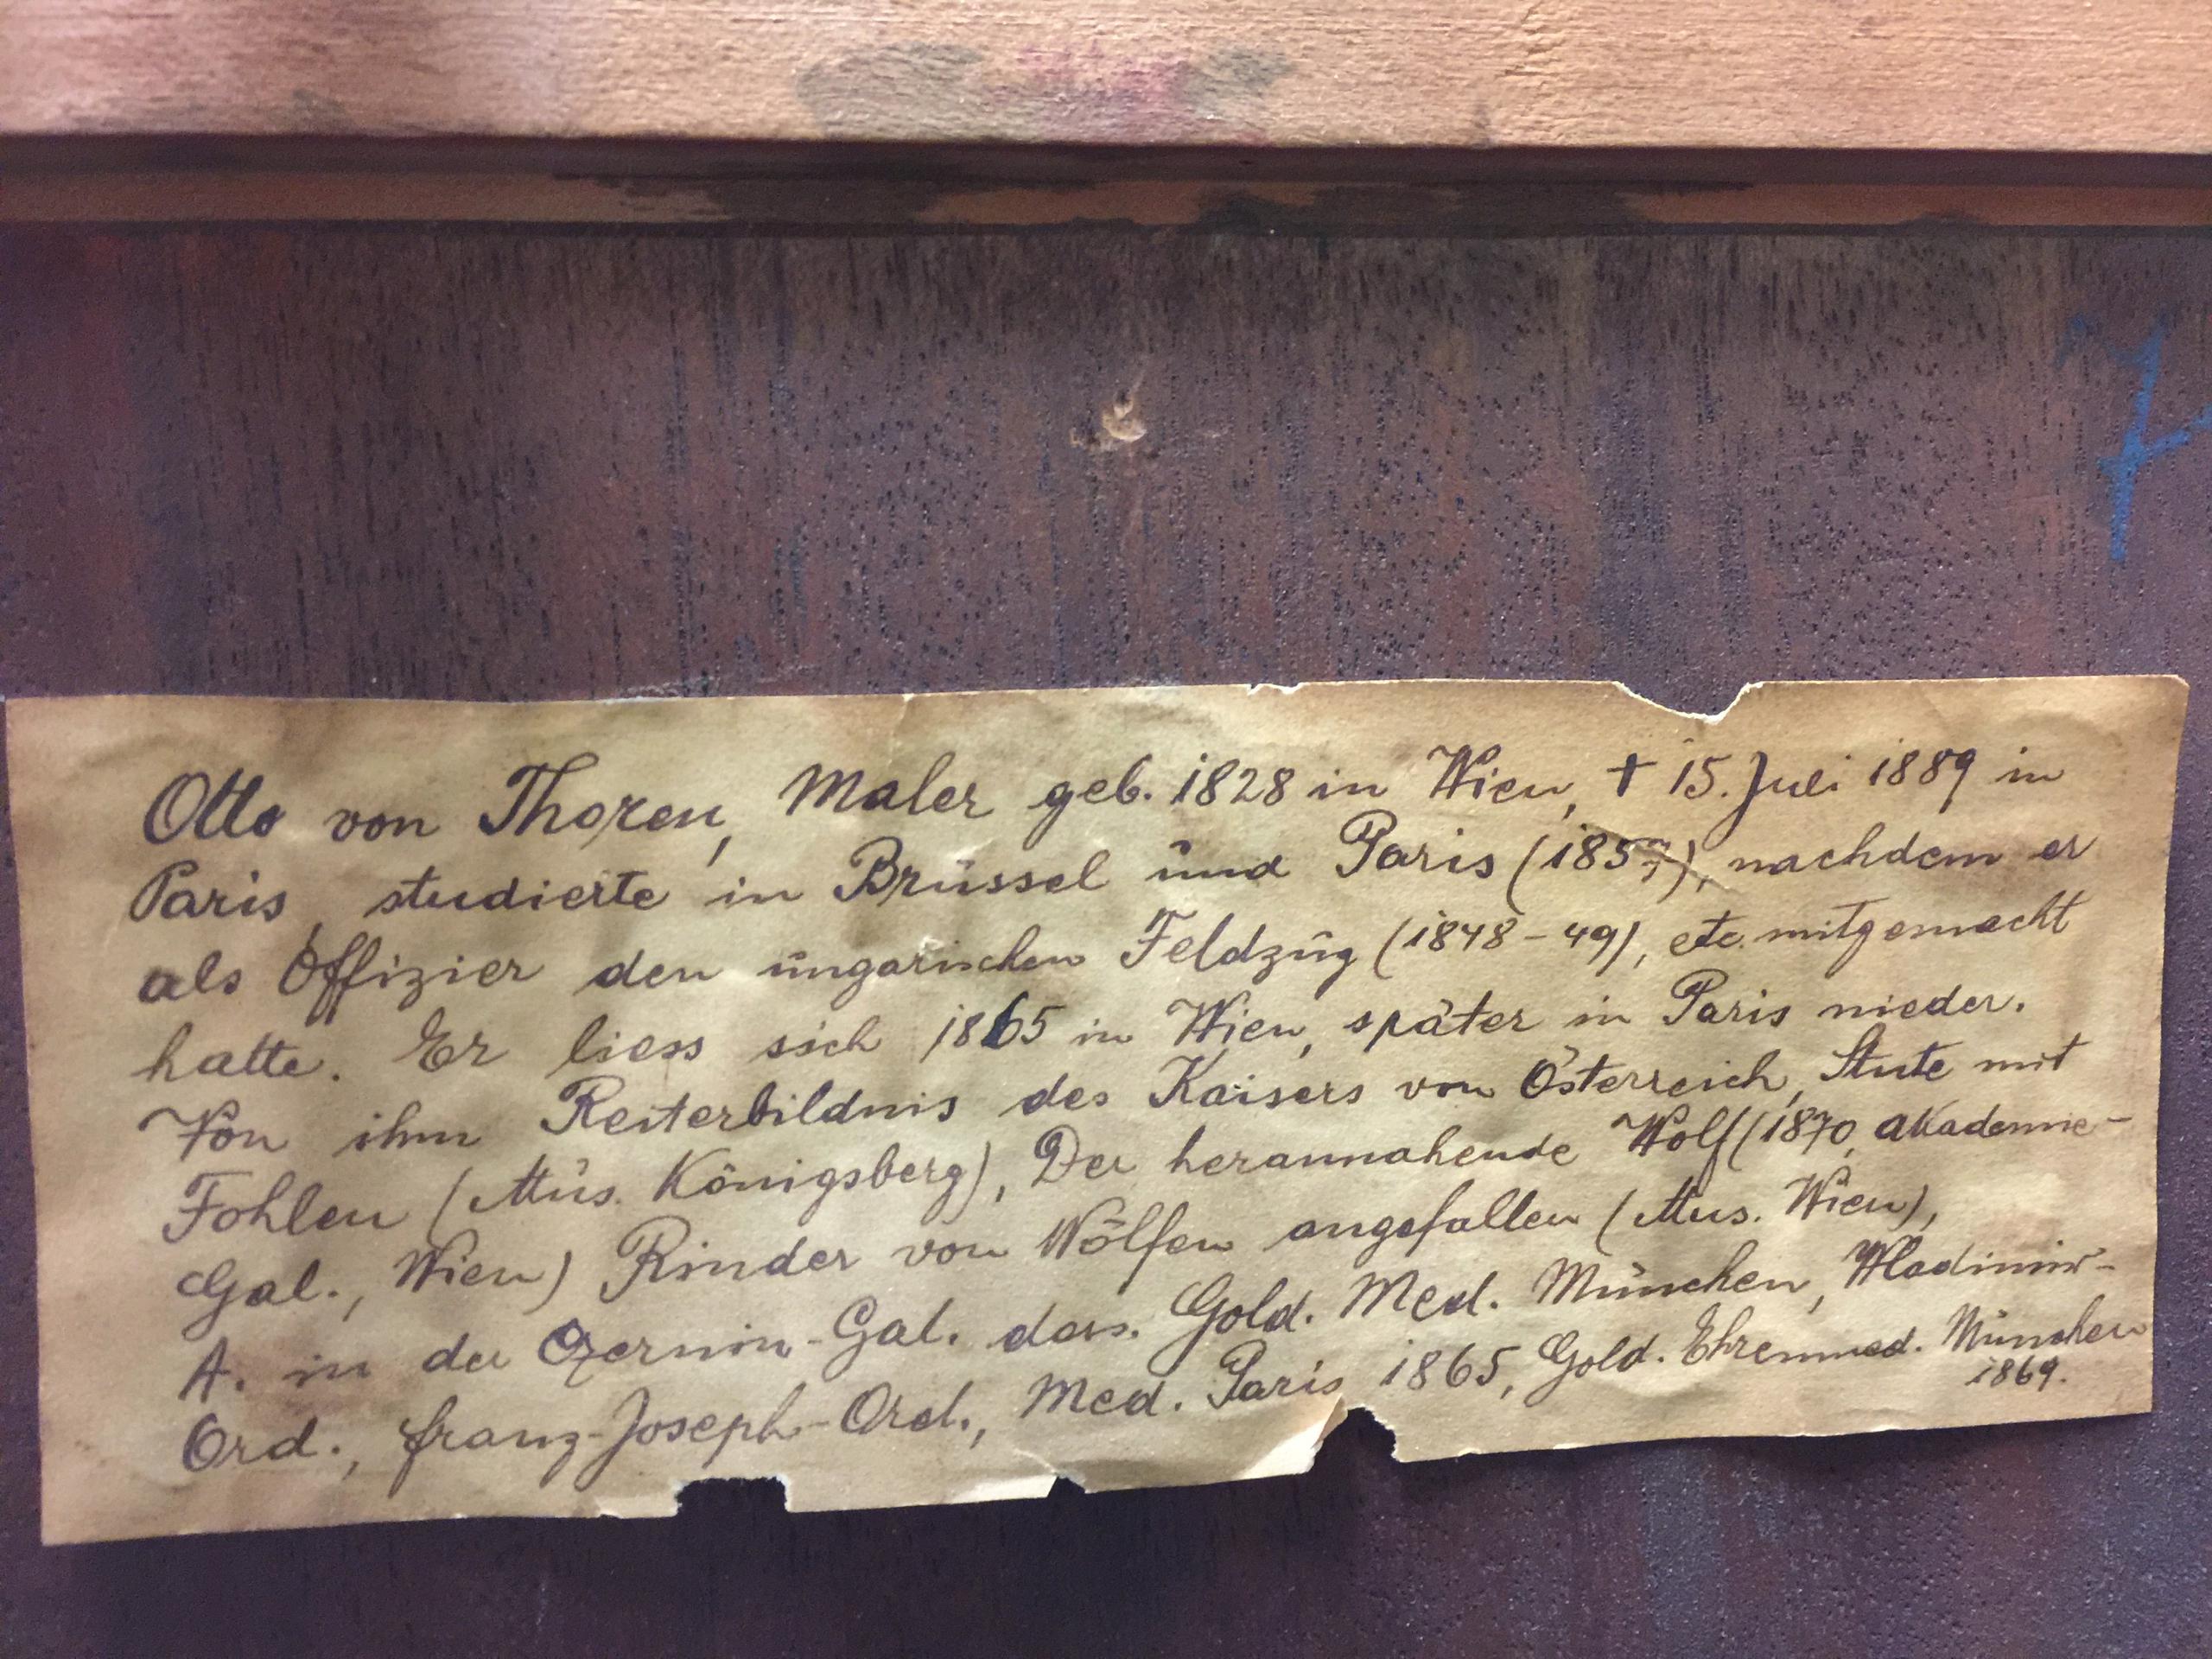 Otto von Thoren, Maler geb. 1828 in Wien, † 15. Juli 1889 in
Paris, studierte in Brüssel und Paris (1857), nachdem er
als Offizier den ungarischen Feldzug (1848-49), etc. mitgemacht
hatte. Er liess sich 1865 in Wien, später in Paris nieder.
Von ihm Reiterbildnis des Kaisers von Österreich, Stute mit
Fohlen (Mus. Königsberg), Der herannahende Wolf (1870, Akademie-
Gal., Wien) Rinder von Wölfen angefallen (Mus. Wien),
A. in der Czernin-Gal. das. Gold. Med. München, Wladimir-
Ord., Franz-Joseph-Ord., Med. Paris 1865, Gold. Ehrenmed. München
1869.